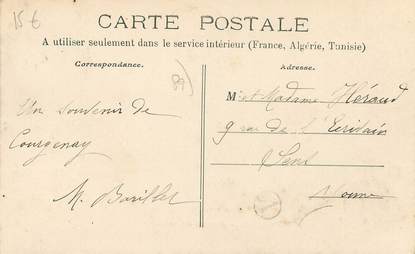 15 €
CARTE POSTALE
A utiliser seulement dans le service intérieur (France, Algérie, Tunisie)
Correspondance.
Adresse.
Un souvenir de
Courgenay
M. Barillet
M. et Madame Héraud
9 rue de l'Ecrivain
Sens
Yonne